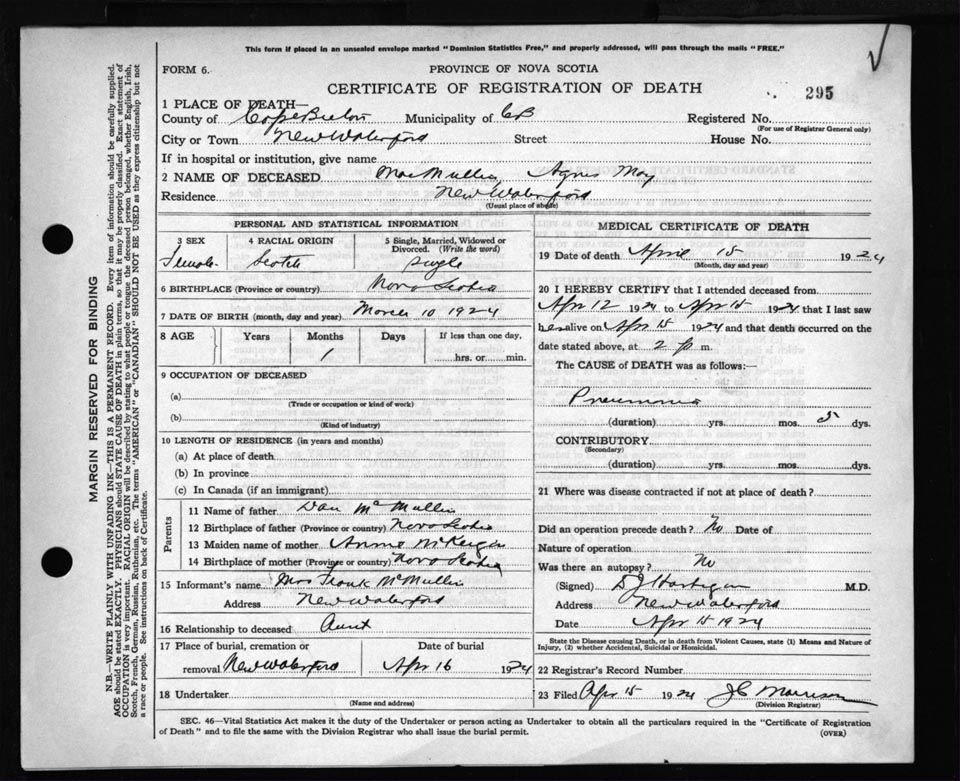 This form if placed in an unsealed envelope marked "Dominion Statistics Free," and properly addressed, will pass through the mails "FREE."
FORM 6.
PROVINCE OF NOVA SCOTIA
CERTIFICATE OF REGISTRATION OF DEATH
295
1 PLACE OF DEATH—
County of Cape Breton Municipality of CB Registered No.
(For use of Registrar General only)
City or Town New Waterford Street House No.
If in hospital or institution, give name
2 NAME OF DECEASED MacMullin, Agnes May
Residence New Waterford
(Usual place of abode)
PERSONAL AND STATISTICAL INFORMATION
3 SEX 4 RACIAL ORIGIN 5 Single, Married, Widowed or Divorced. (Write the word)
Female Scotch Single
6 BIRTHPLACE (Province or country) Nova Scotia
7 DATE OF BIRTH (month, day and year) March 10 1924
8 AGE Years Months Days If less than one day,
1 hrs. or min.
9 OCCUPATION OF DECEASED
(a)
(Trade or occupation or kind of work)
(b)
(Kind of industry)
10 LENGTH OF RESIDENCE (in years and months)
(a) At place of death
(b) In province
(c) In Canada (if an immigrant)
Parents
11 Name of father Dan McMullin
12 Birthplace of father (Province or country) Nova Scotia
13 Maiden name of mother Annie
14 Birthplace of mother (Province or country) Nova Scotia
15 Informant's name Mrs Frank McMullin
Address New Waterford
16 Relationship to deceased Aunt
17 Place of burial, cremation or removal New Waterford Date of burial Apr 16 1924
18 Undertaker
(Name and address)
MEDICAL CERTIFICATE OF DEATH
19 Date of death April 15 1924
(Month, day and year)
20 I HEREBY CERTIFY that I attended deceased from
Apr 12 1924 to Apr 15 1924 that I last saw
her alive on Apr 15 1924 and that death occurred on
date stated above, at 2 p m.
The CAUSE of DEATH was as follows:—
Pneumonia
(duration) yrs. mos. 3 dys.
CONTRIBUTORY
(Secondary)
(duration) yrs. mos. dys.
21 Where was disease contracted if not at place of death?
Did an operation precede death? No Date of
Nature of operation
Was there an autopsy? No
(Signed) D J Hartigan M.D.
Address New Waterford
Date Apr 15 1924
State the Disease causing Death, or in death from Violent Causes, state (1) Means and Nature of Injury, (2) whether Accidental, Suicidal or Homicidal.
22 Registrar's Record Number
23 Filed Apr 15 1924 J C Morrison
(Division Registrar)
SEC. 46—Vital Statistics Act makes it the duty of the Undertaker or person acting as Undertaker to obtain all the particulars required in the "Certificate of Registration of Death" and to file the same with the Division Registrar who shall issue the burial permit.
(OVER)
MARGIN RESERVED FOR BINDING
N.B.—WRITE PLAINLY WITH UNFADING INK—THIS IS A PERMANENT RECORD. Every item of information should be carefully supplied.
AGE should be stated EXACTLY. PHYSICIANS should STATE CAUSE OF DEATH in plain terms, so that it may be properly classified. Exact statement of
OCCUPATION is very important. RACIAL ORIGIN will be described by stating to what people or tongue the deceased person belonged, whether English, Irish,
Scotch, French, German, Russian, Ruthenian, etc. The terms "AMERICAN" or "CANADIAN" SHOULD NOT BE USED as they express citizenship but not
a race or people. See instructions on back of Certificate.